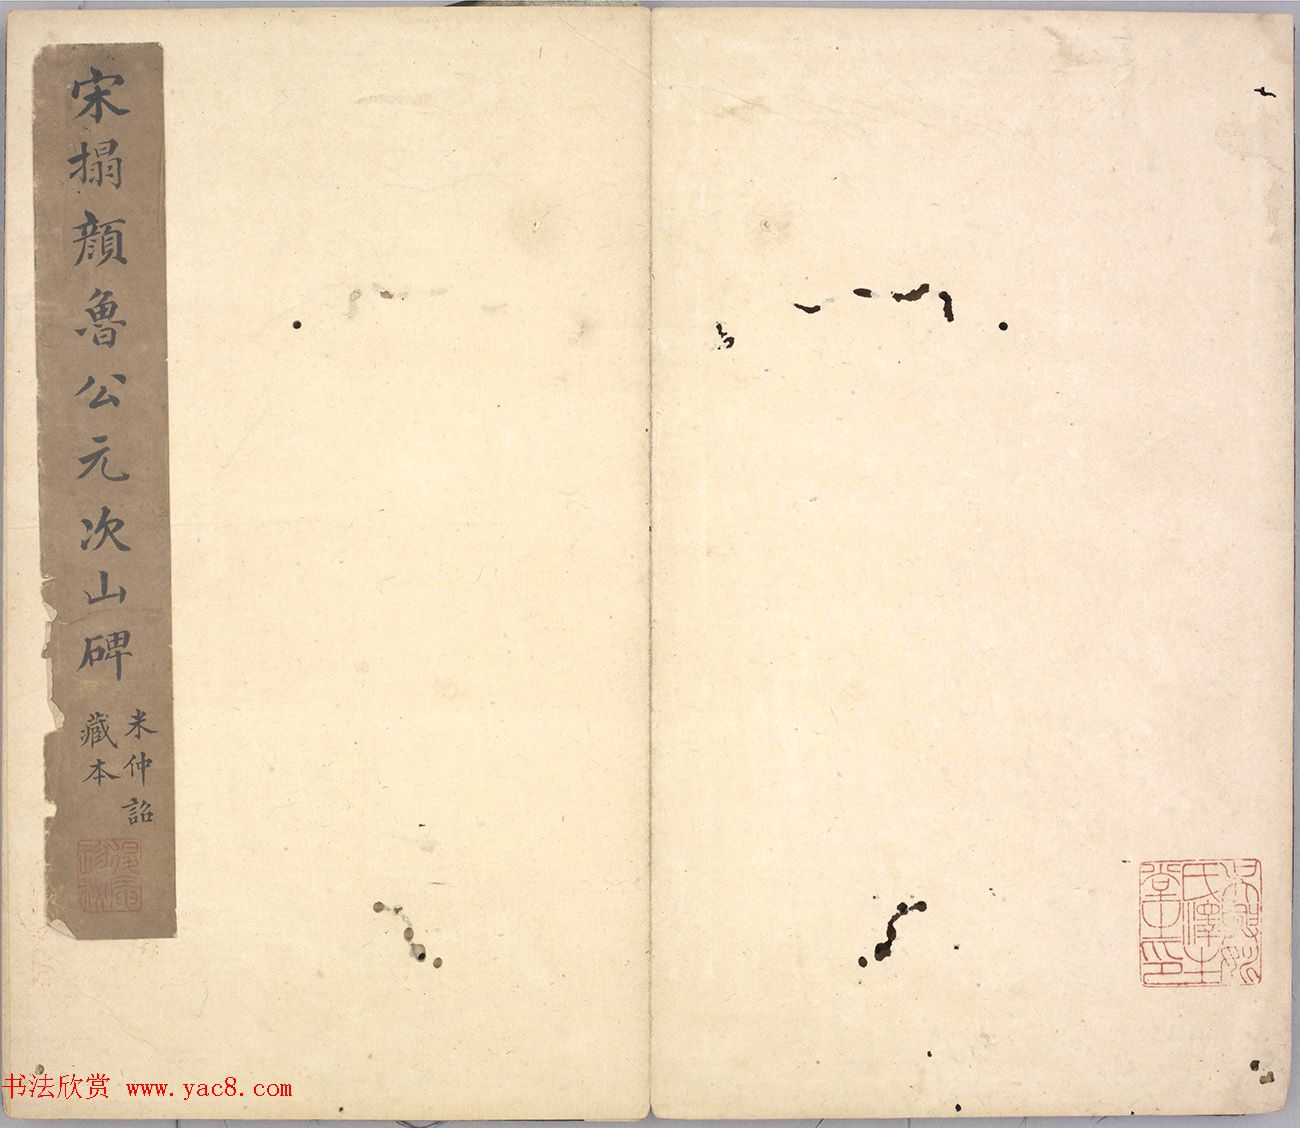 宋搨顔魯公元次山碑
米仲詔
藏本
书法欣赏 www.yac8.com